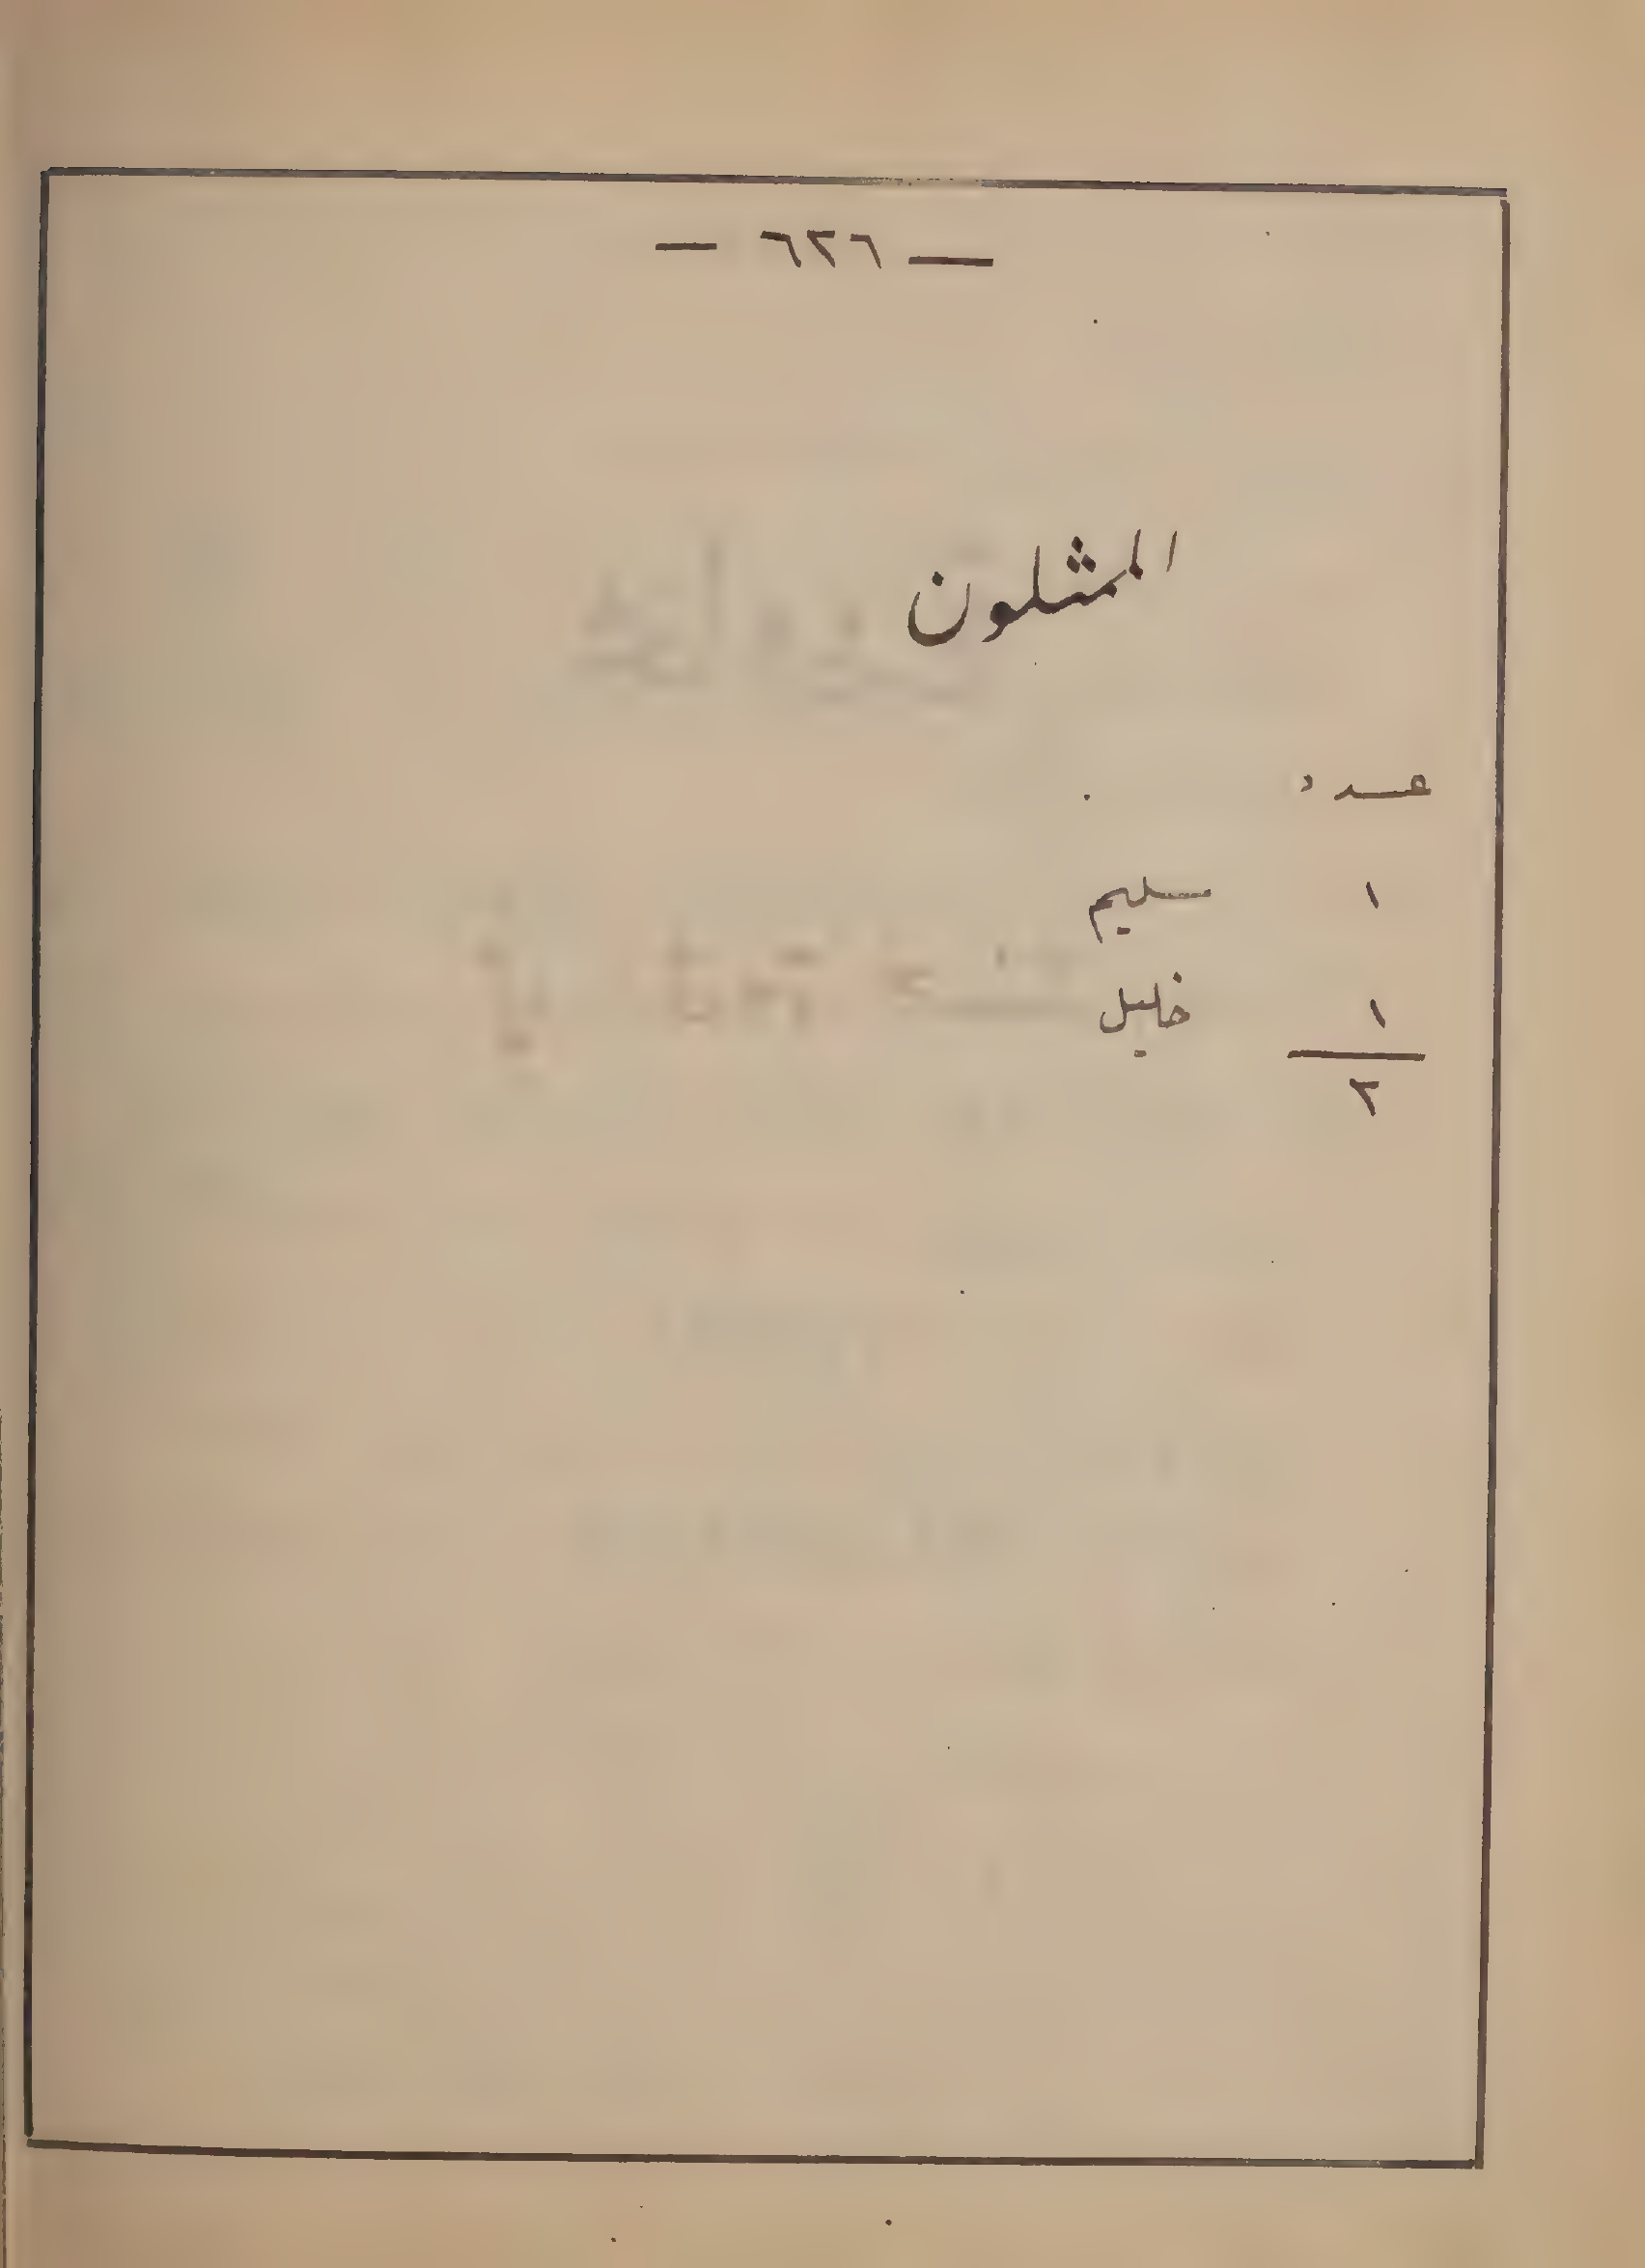 — ٦٢٦ —
الممثلون
عدد
١ سليم
١ خليل
٢